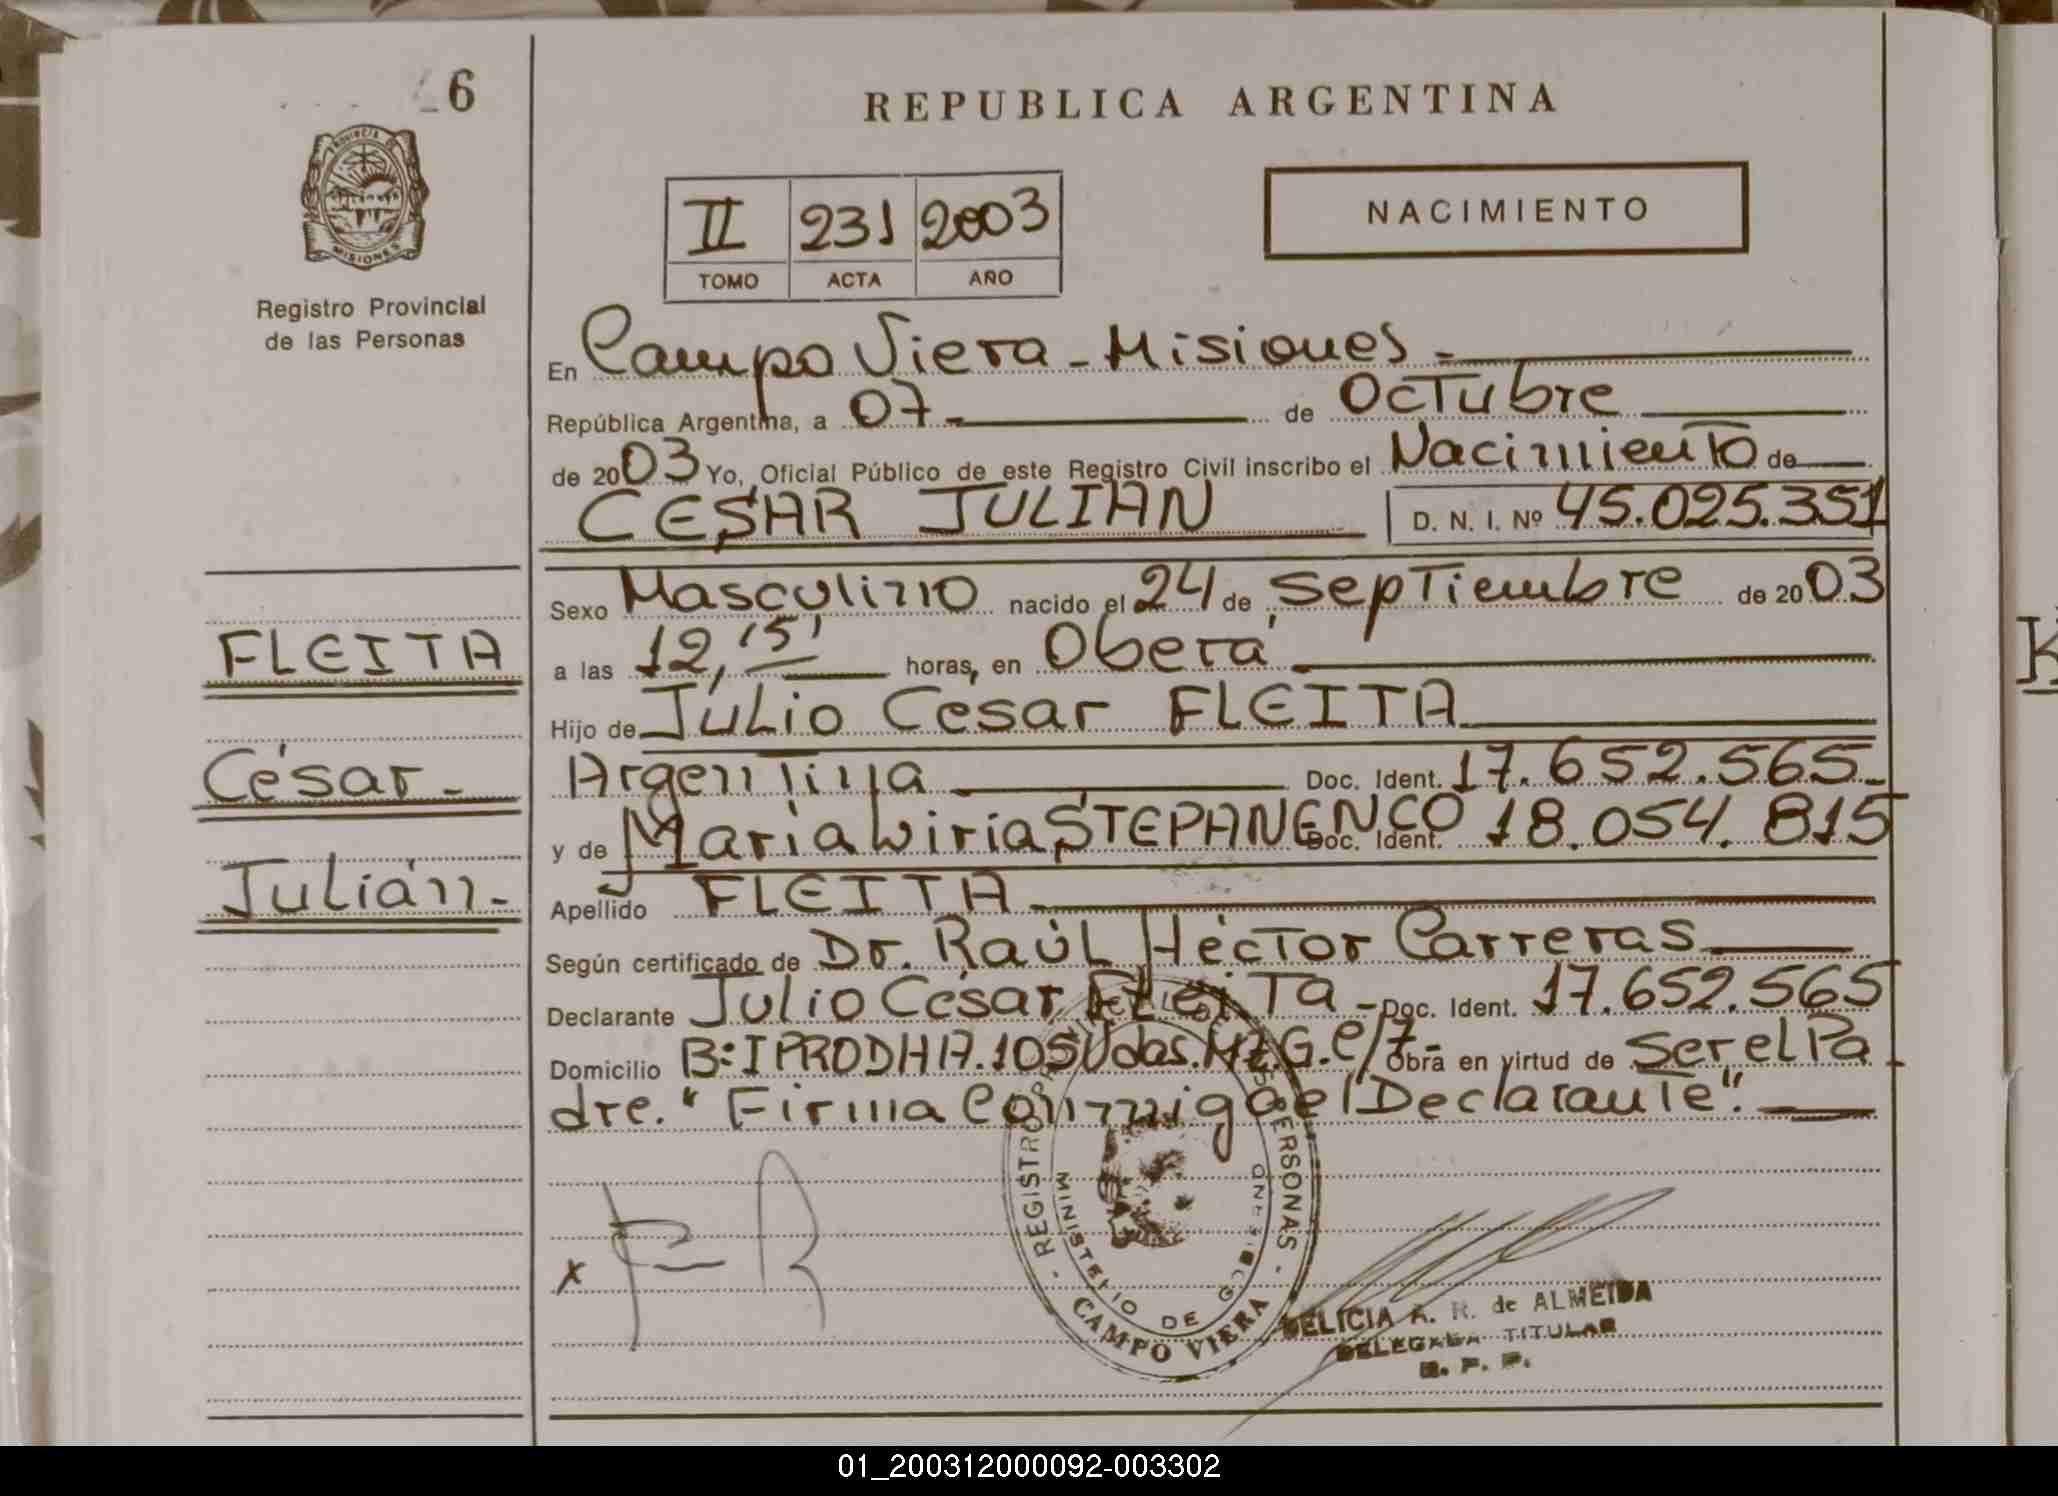 6
PROVINCIA
MISIONES
Registro Provincial
de las Personas
FLEITA
César -
Julián. -
REPUBLICA ARGENTINA
II 231 2003
TOMO ACTA AÑO
NACIMIENTO
En Campo Viera - Misiones -
República Argentina, a 07 - de Octubre
de 2003 Yo, Oficial Público de este Registro Civil inscribo el Nacimiento de
CESAR JULIAN D. N. I. Nº 45.025.351
Sexo Masculino nacido el 24 de Septiembre de 2003
a las 12,15' horas, en Oberá
Hijo de Julio César FLEITA
Argentina Doc. Ident. 17.652.565 -
y de María Liria STEPANENCO Doc. Ident. 18.054.815
Apellido FLEITA
Según certificado de Dr. Raúl Héctor Carreras
Declarante Julio César Fleita - Doc. Ident. 17.652.565
Domicilio B: IPRODHA. 105 Vdas. Mz. G. C/7 - Obra en virtud de Ser el Pa
dre. "Firma Conmigo el Declarante".
x
REGISTRO PROVINCIAL DE LAS PERSONAS
MINISTERIO DE
CAMPO VIERA
DELICIA A. R. de ALMEIDA
DELEGADA TITULAR
R. P. P.
01_200312000092-003302